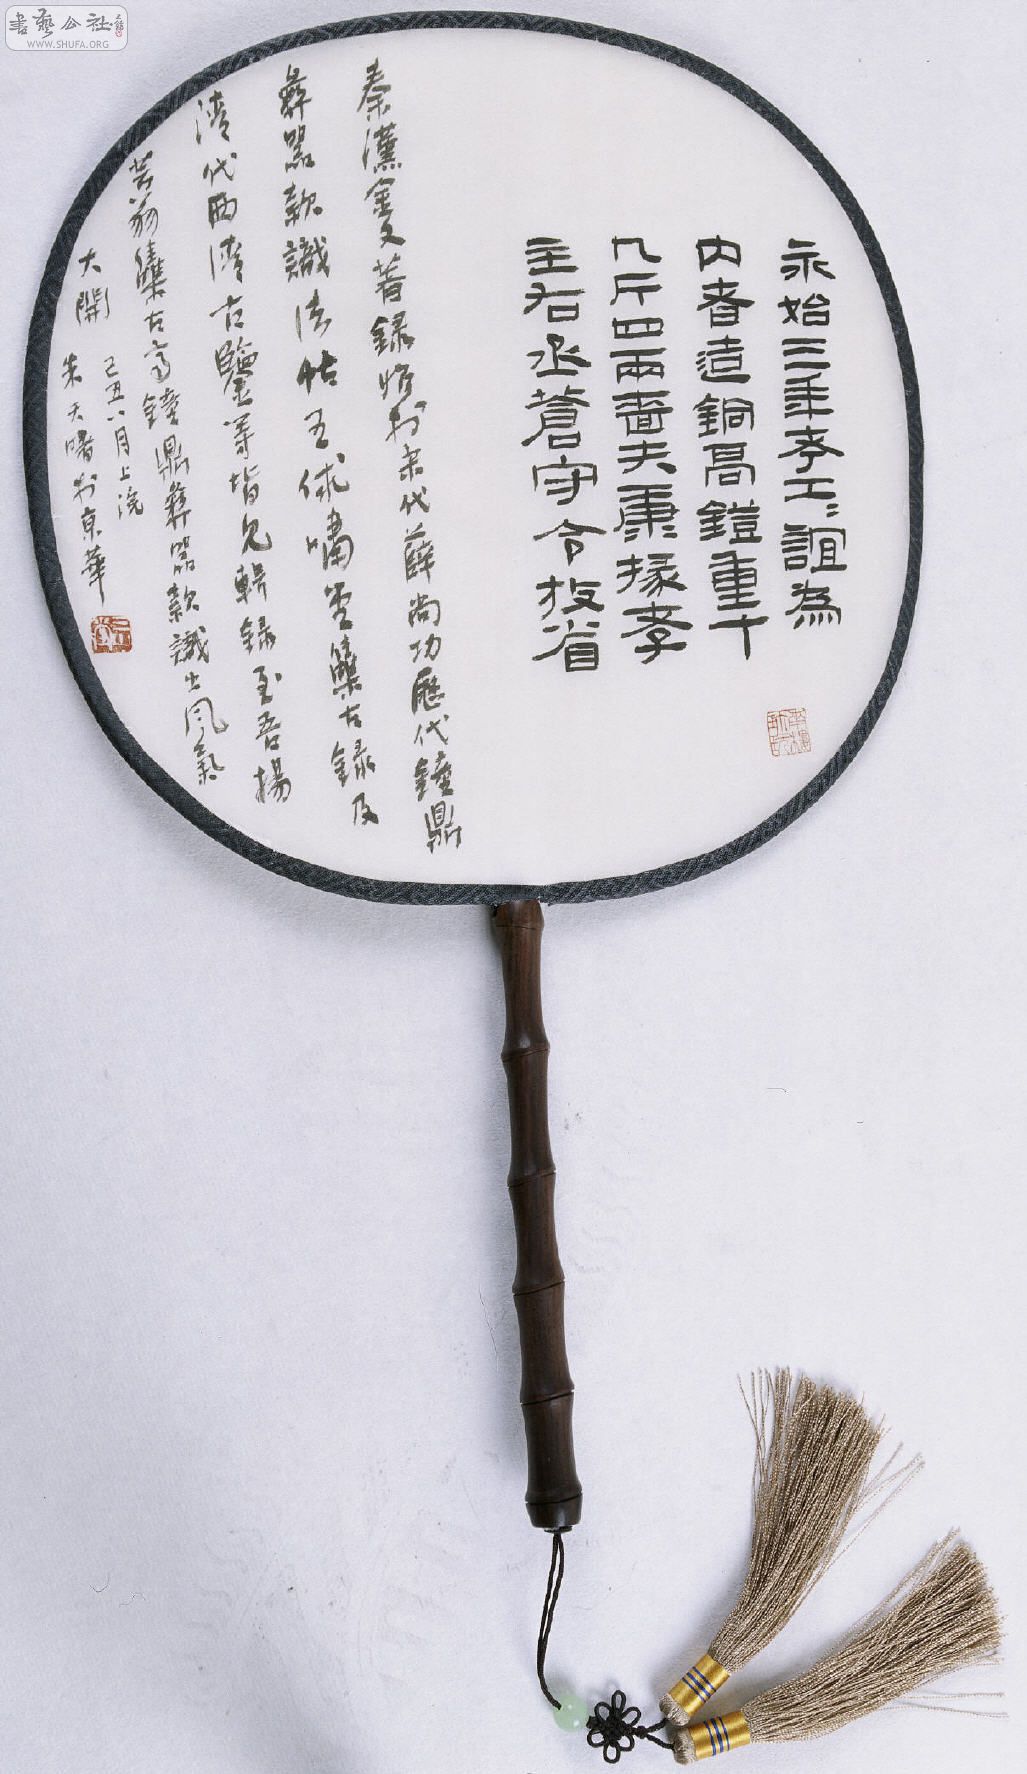 永始三年考工=誼為
内者造銅鬲鎧重十
八斤四兩嗇夫康掾孝
主右丞蒼守令放省
秦漢金文著錄始於宋代薛尚功歷代鐘鼎
彝器款識法帖王俅嘯堂集古錄及
清代西清古鑒等皆見輯錄至吾揚
芸翁集古高鐘鼎彝器款識出風氣
大開
己丑八月上浣
朱天曙於京華
書藝公社
WWW.SHUFA.ORG